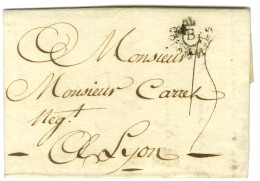 Monsieur
Monsieur Carret
Negt
A Lyon
B